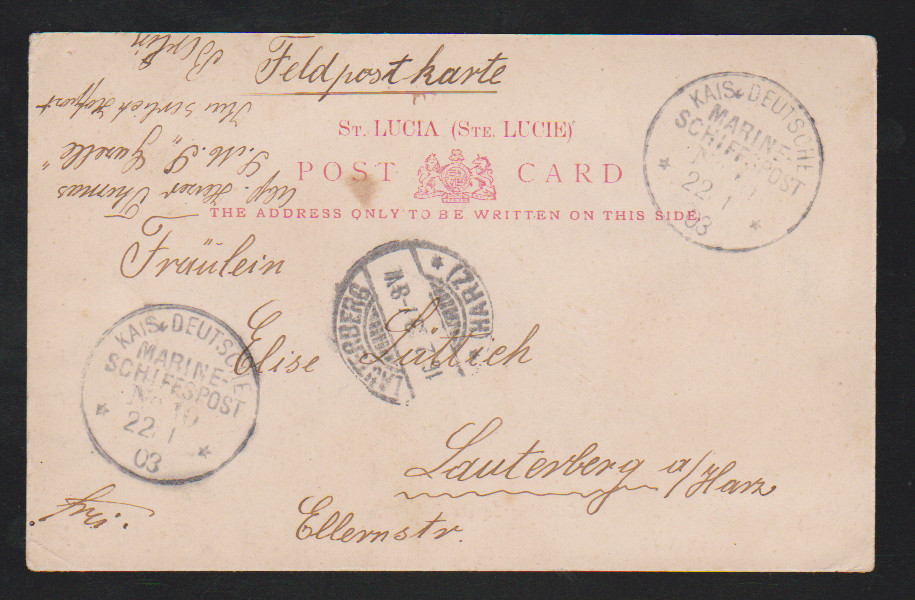 Feldpostkarte
ST. LUCIA (STE. LUCIE)
POST CARD
THE ADDRESS ONLY TO BE WRITTEN ON THIS SIDE.
Thomas
S. M. S. „Gazelle”
Berlin
KAIS. DEUTSCHE
MARINE-
SCHIFFSPOST
No
22 1
03
Fräulein
Elise
Lauterberg a/Harz
Ellernstr.
frei.
KAIS. DEUTSCHE
MARINE-
SCHIFFSPOST
No 10
22 1
03
LAUTERBERG
(HARZ)